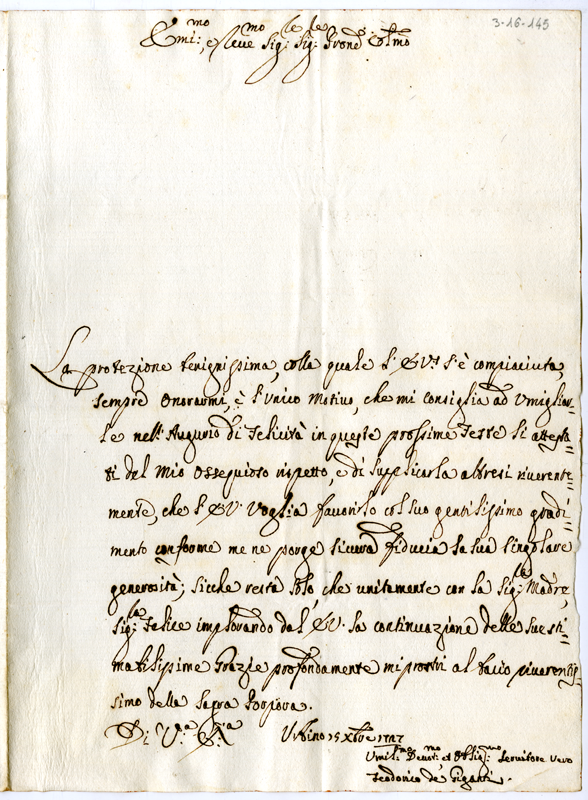 3-16-145
Emi:mo, e Reve:mo Sig:re Sig:re Prone Colmo
La protezione benignissima, colla quale l'E.V. s'è compiaciuta,
sempre onorarmi, è l'unico motivo, che mi consiglia ad Umigliar-
le nell'Augurio di Felicità in queste prossime Feste li attesta-
ti del mio ossequioso rispetto, e di supplicarla altresì riverente-
mente, che l'E.V. Voglia favorirlo col suo gentilissimo gradi-
mento conforme me ne porge sicura fiducia la sua singolare
generosità; sicche resta solo, che unitamente con la Sig:ra Madre,
Sig:ra Felice implorando dal E.V. la continuazione delle sue sti-
matissime Grazie profondamente mi prostri al bacio riverentis-
simo della Sagra Porpora.
Di V.ra E.za Urbino 15 Xbre 1727
Umil:mo Devot:mo et Obblig:mo Servitore Vero
Teodorico de Giganti.